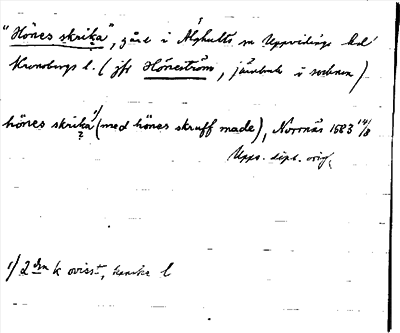 "Hönes skrika", gård i Älghults sn Uppvidinge hd
Kronobergs l. (jfr Höneström, järnbruk i socknen)
höneś skrika 1) (med hönes skruff made), Norrnäs 1583 14/8
Upps. dipl. orig.
1) 2 dra k ovisst, kanske l